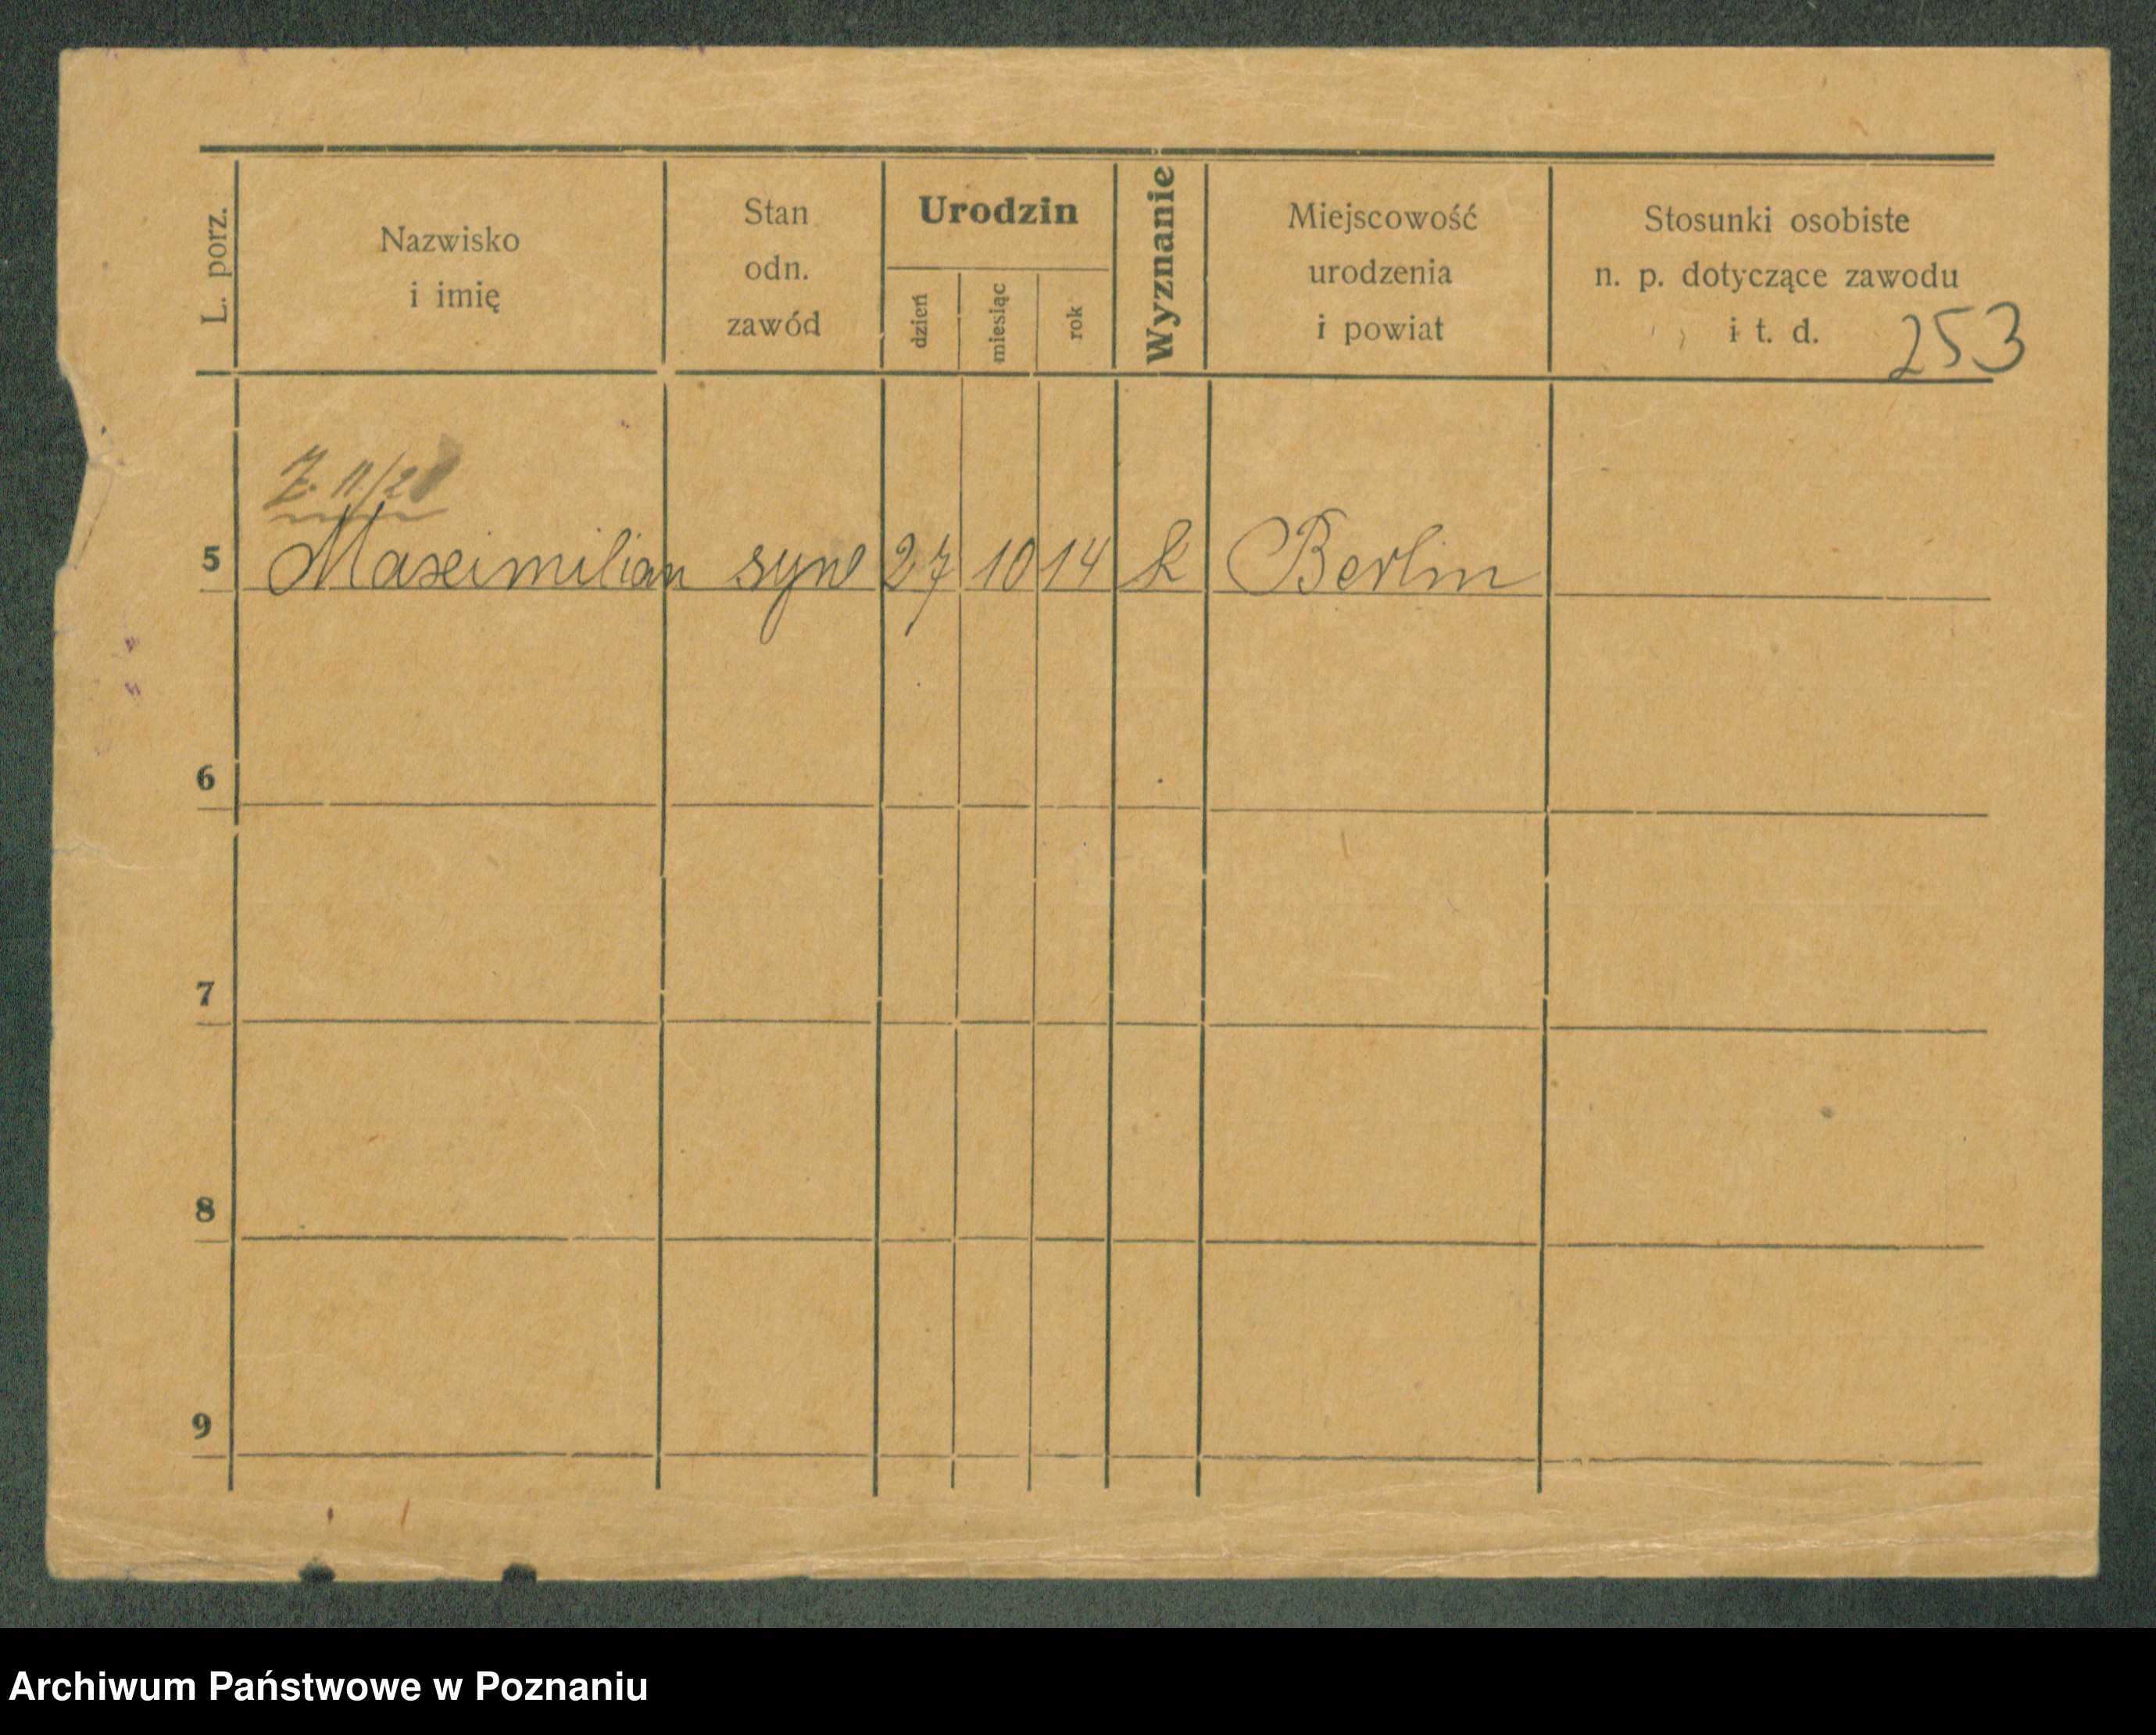 L. porz.
Nazwisko
i imię
Stan
odn.
zawód
Urodzin
dzień
miesiąc
rok
Wyznanie
Miejscowość
urodzenia
i powiat
Stosunki osobiste
n. p. dotyczące zawodu
i t. d.
253
5 Maximilian syn 27 10 14 k Berlin
6
7
8
9
Archiwum Państwowe w Poznaniu